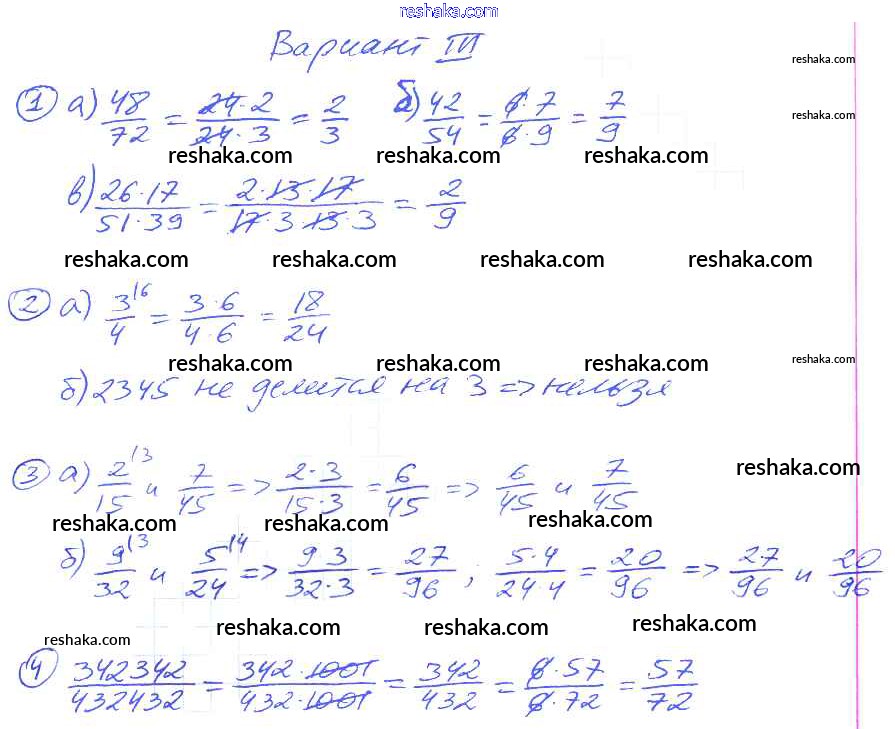 reshaka.com
Вариант III
reshaka.com
1 а) 48/72 = 24·2/24·3 = 2/3 б) 42/54 = 6·7/6·9 = 7/9
reshaka.com
reshaka.com reshaka.com reshaka.com
в) 26·17/51·39 = 2·13·17/17·3·13·3 = 2/9
reshaka.com reshaka.com reshaka.com reshaka.com
2 а) 3/4 |6 = 3·6/4·6 = 18/24
reshaka.com reshaka.com reshaka.com reshaka.com
б) 2345 не делится на 3 => нельзя
3 а) 2/15 |3 и 7/45 => 2·3/15·3 = 6/45 => 6/45 и 7/45
reshaka.com
reshaka.com reshaka.com reshaka.com
б) 9/32 |3 и 5/24 |4 => 9 3/32·3 = 27/96 ; 5·4/24·4 = 20/96 => 27/96 и 20/96
reshaka.com reshaka.com reshaka.com reshaka.com
4 342342/432432 = 342·1001/432·1001 = 342/432 = 6·57/6·72 = 57/72